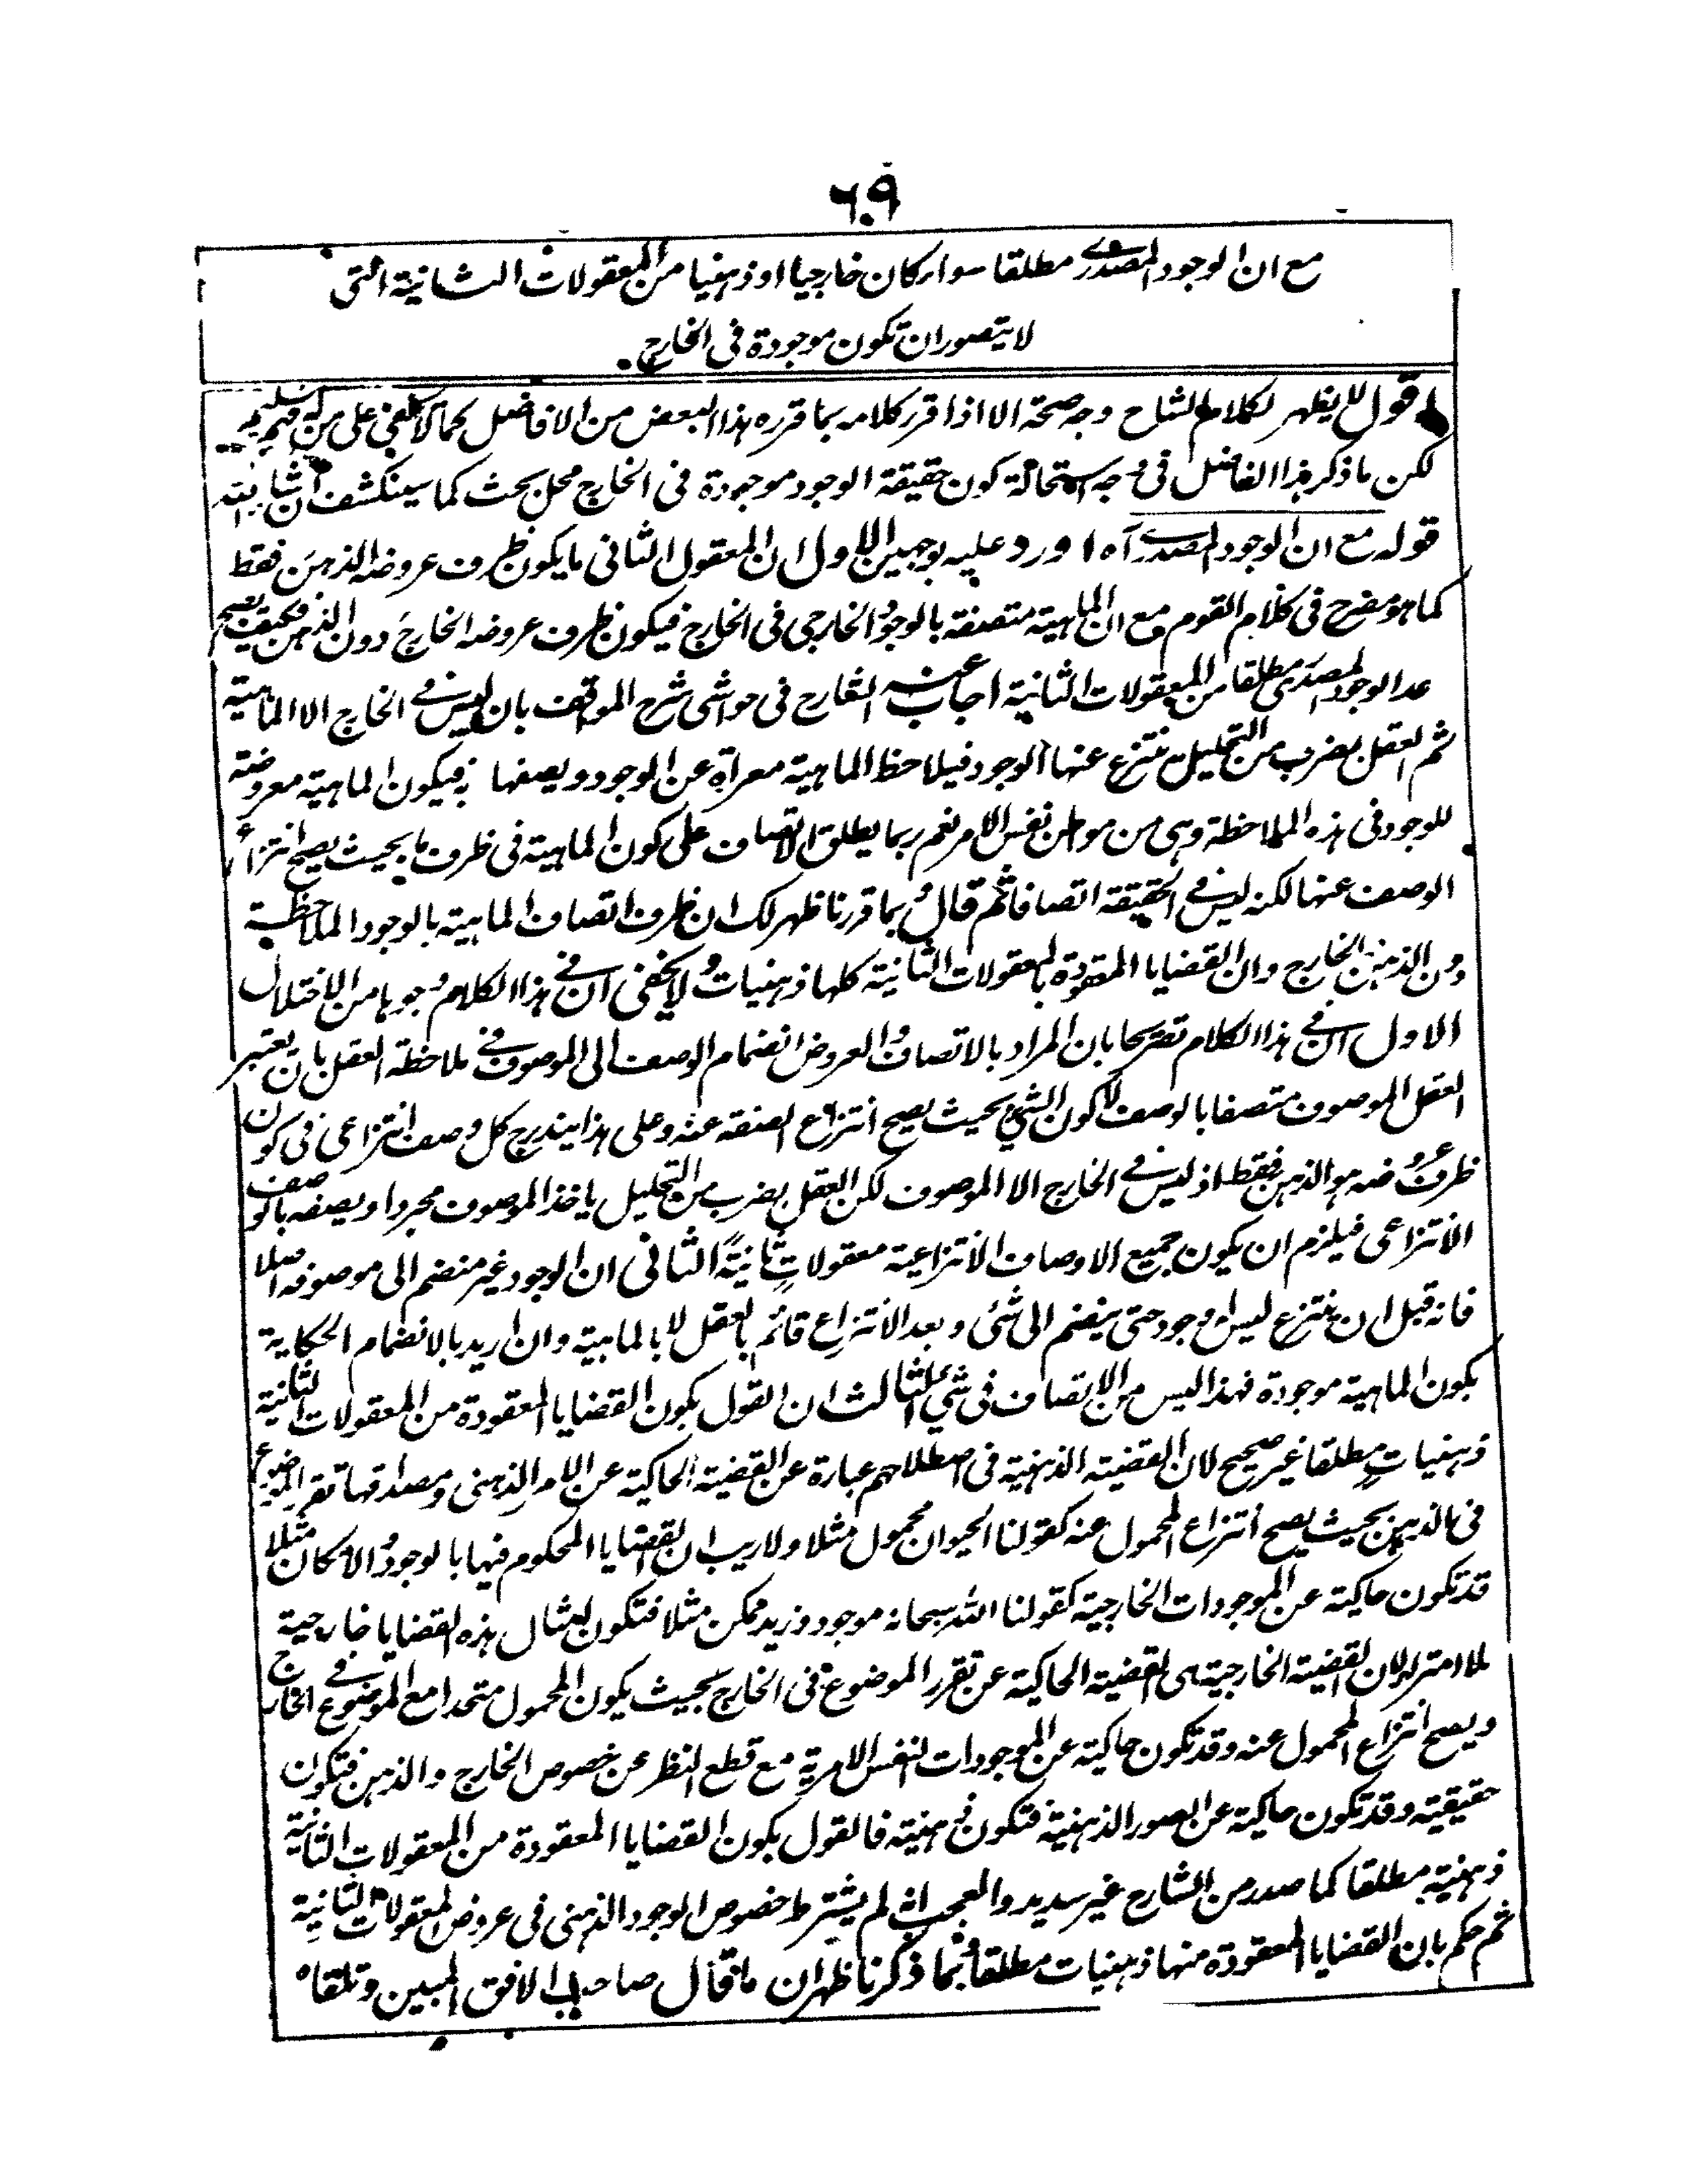 ٦٠٩
مع ان الوجود المصدرى مطلقا سواء كان خارجيا او ذهنيا من المعقولات الثانية التى
لا يتصور ان تكون موجودة فى الخارج.
اقول لا يظهر لكلام الشارح وجه صحة الا اذا قرر كلامه بما قرره هذا البعض من الافاضل كما لا يخفى على من له فهم سليم
لكن ما ذكر هذا الفاضل فى وجه استحالة كون حقيقة الوجود موجودة فى الخارج محل بحث كما سينكشف ان شاء الله
قوله مع ان الوجود المصدرى آه اورد عليه بوجهين الاول ان المعقول الثانى ما يكون ظرف عروضه الذهن فقط
كما هو مصرح فى كلام القوم مع ان الماهية متصفة بالوجود الخارجى فى الخارج فيكون ظرف عروضه الخارج دون الذهن فكيف يصح
عد الوجود المصدرى مطلقا من المعقولات الثانية اجاب عنه الشارح فى حواشى شرح المواقف بان ليس فى الخارج الا الماهية
ثم العقل بضرب من التحليل ينتزع عنها الوجود فيلاحظ الماهية معراة عن الوجود ويصفها به فيكون الماهية معروضة
للوجود فى هذه الملاحظة وهى من مواطن نفس الامر نعم ربما يطلق الاتصاف على كون الماهية فى ظرف ما بحيث يصح انتزاع
الوصف عنها لكنه ليس فى الحقيقة اتصافا ثم قال و بما قررنا ظهر لك ان ظرف اتصاف الماهية بالوجود الملاحظة
دون الذهن والخارج وان القضايا المعقودة بالمعقولات الثانية كلها ذهنيات ولا يخفى ان فى هذا الكلام وجوها من الاختلال
الاول ان فى هذا الكلام تصريحا بان المراد بالاتصاف والعروض انضمام الوصف الى الموصوف فى ملاحظة العقل بان يعتبر
العقل الموصوف متصفا بالوصف لا كون الشئ بحيث يصح انتزاع الصفة عنه وعلى هذا يندرج كل وصف انتزاعى فى كون
ظرف عروضه هو الذهن فقط اذ ليس فى الخارج الا الموصوف لكن العقل بضرب من التحليل ياخذ الموصوف مجردا ويصفه بالوصف
الانتزاعى فيلزم ان يكون جميع الاوصاف الانتزاعية معقولات ثانية الثانى ان الوجود غير منضم الى موصوفه اصلا
فانه قبل ان ينتزع ليس له وجود حتى ينضم الى شئ و بعد الانتزاع قائم بالعقل لا بالماهية وان اريد بالانضمام الحكاية
بكون الماهية موجودة فهذا ليس من الاتصاف فى شئ الثالث ان القول بكون القضايا المعقودة من المعقولات الثانية
ذهنيات مطلقا غير صحيح لان القضية الذهنية فى اصطلاحهم عبارة عن القضية الحاكية عن الامر الذهنى ومصداقها تقرر الموضوع
فى الذهن بحيث يصح انتزاع المحمول عنه كقولنا الحيوان محمول مثلا ولا ريب ان القضايا المحكوم فيها بالوجود والامكان مثلا
قد تكون حاكية عن الموجودات الخارجية كقولنا الله سبحانه موجود وزيد ممكن مثلا فتكون امثال هذه القضايا خارجية
بلا امتراء لان القضية الخارجية هى القضية الحاكية عن تقرر الموضوع فى الخارج بحيث يكون المحمول متحدا مع الموضوع فى الخارج
ويصح انتزاع المحمول عنه وقد تكون حاكية عن الموجودات النفس الامرية مع قطع النظر عن خصوص الخارج والذهن فتكون
حقيقية وقد تكون حاكية عن الصور الذهنية فتكون ذهنية فالقول بكون القضايا المعقودة من المعقولات الثانية
ذهنية مطلقا كما صدر من الشارح غير سديد والعجب انه لم يشترط خصوص الوجود الذهنى فى عروض المعقولات الثانية
ثم حكم بان القضايا المعقودة منها ذهنيات مطلقا وبما ذكرنا ظهر ان ما قال صاحب الافق المبين وتلقاه